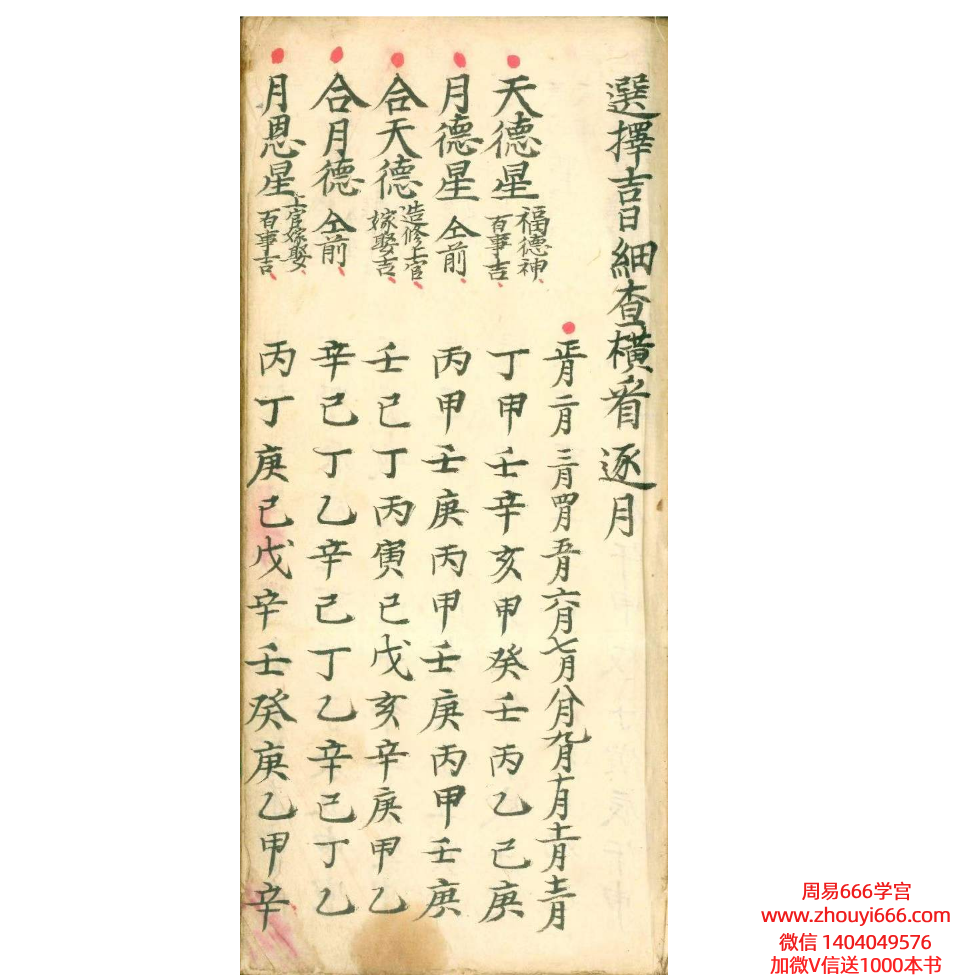 選擇吉日細查橫看逐月
正月二月三月四月五月六月七月八月九月十月十一月十二月
天德星 福德神百事吉 丁甲壬辛亥甲癸壬丙乙己庚
月德星 仝前 丙甲壬庚丙甲壬庚丙甲壬庚
合天德 造修上官嫁娶吉 壬巳丁丙寅己戊亥辛庚甲乙
合月德 仝前 辛己丁乙辛己丁乙辛己丁乙
月恩星 上官嫁娶百事吉 丙丁庚己戊辛壬癸庚乙甲辛
周易666学宫
www.zhouyi666.com
微信 1404049576
加微V信送1000本书